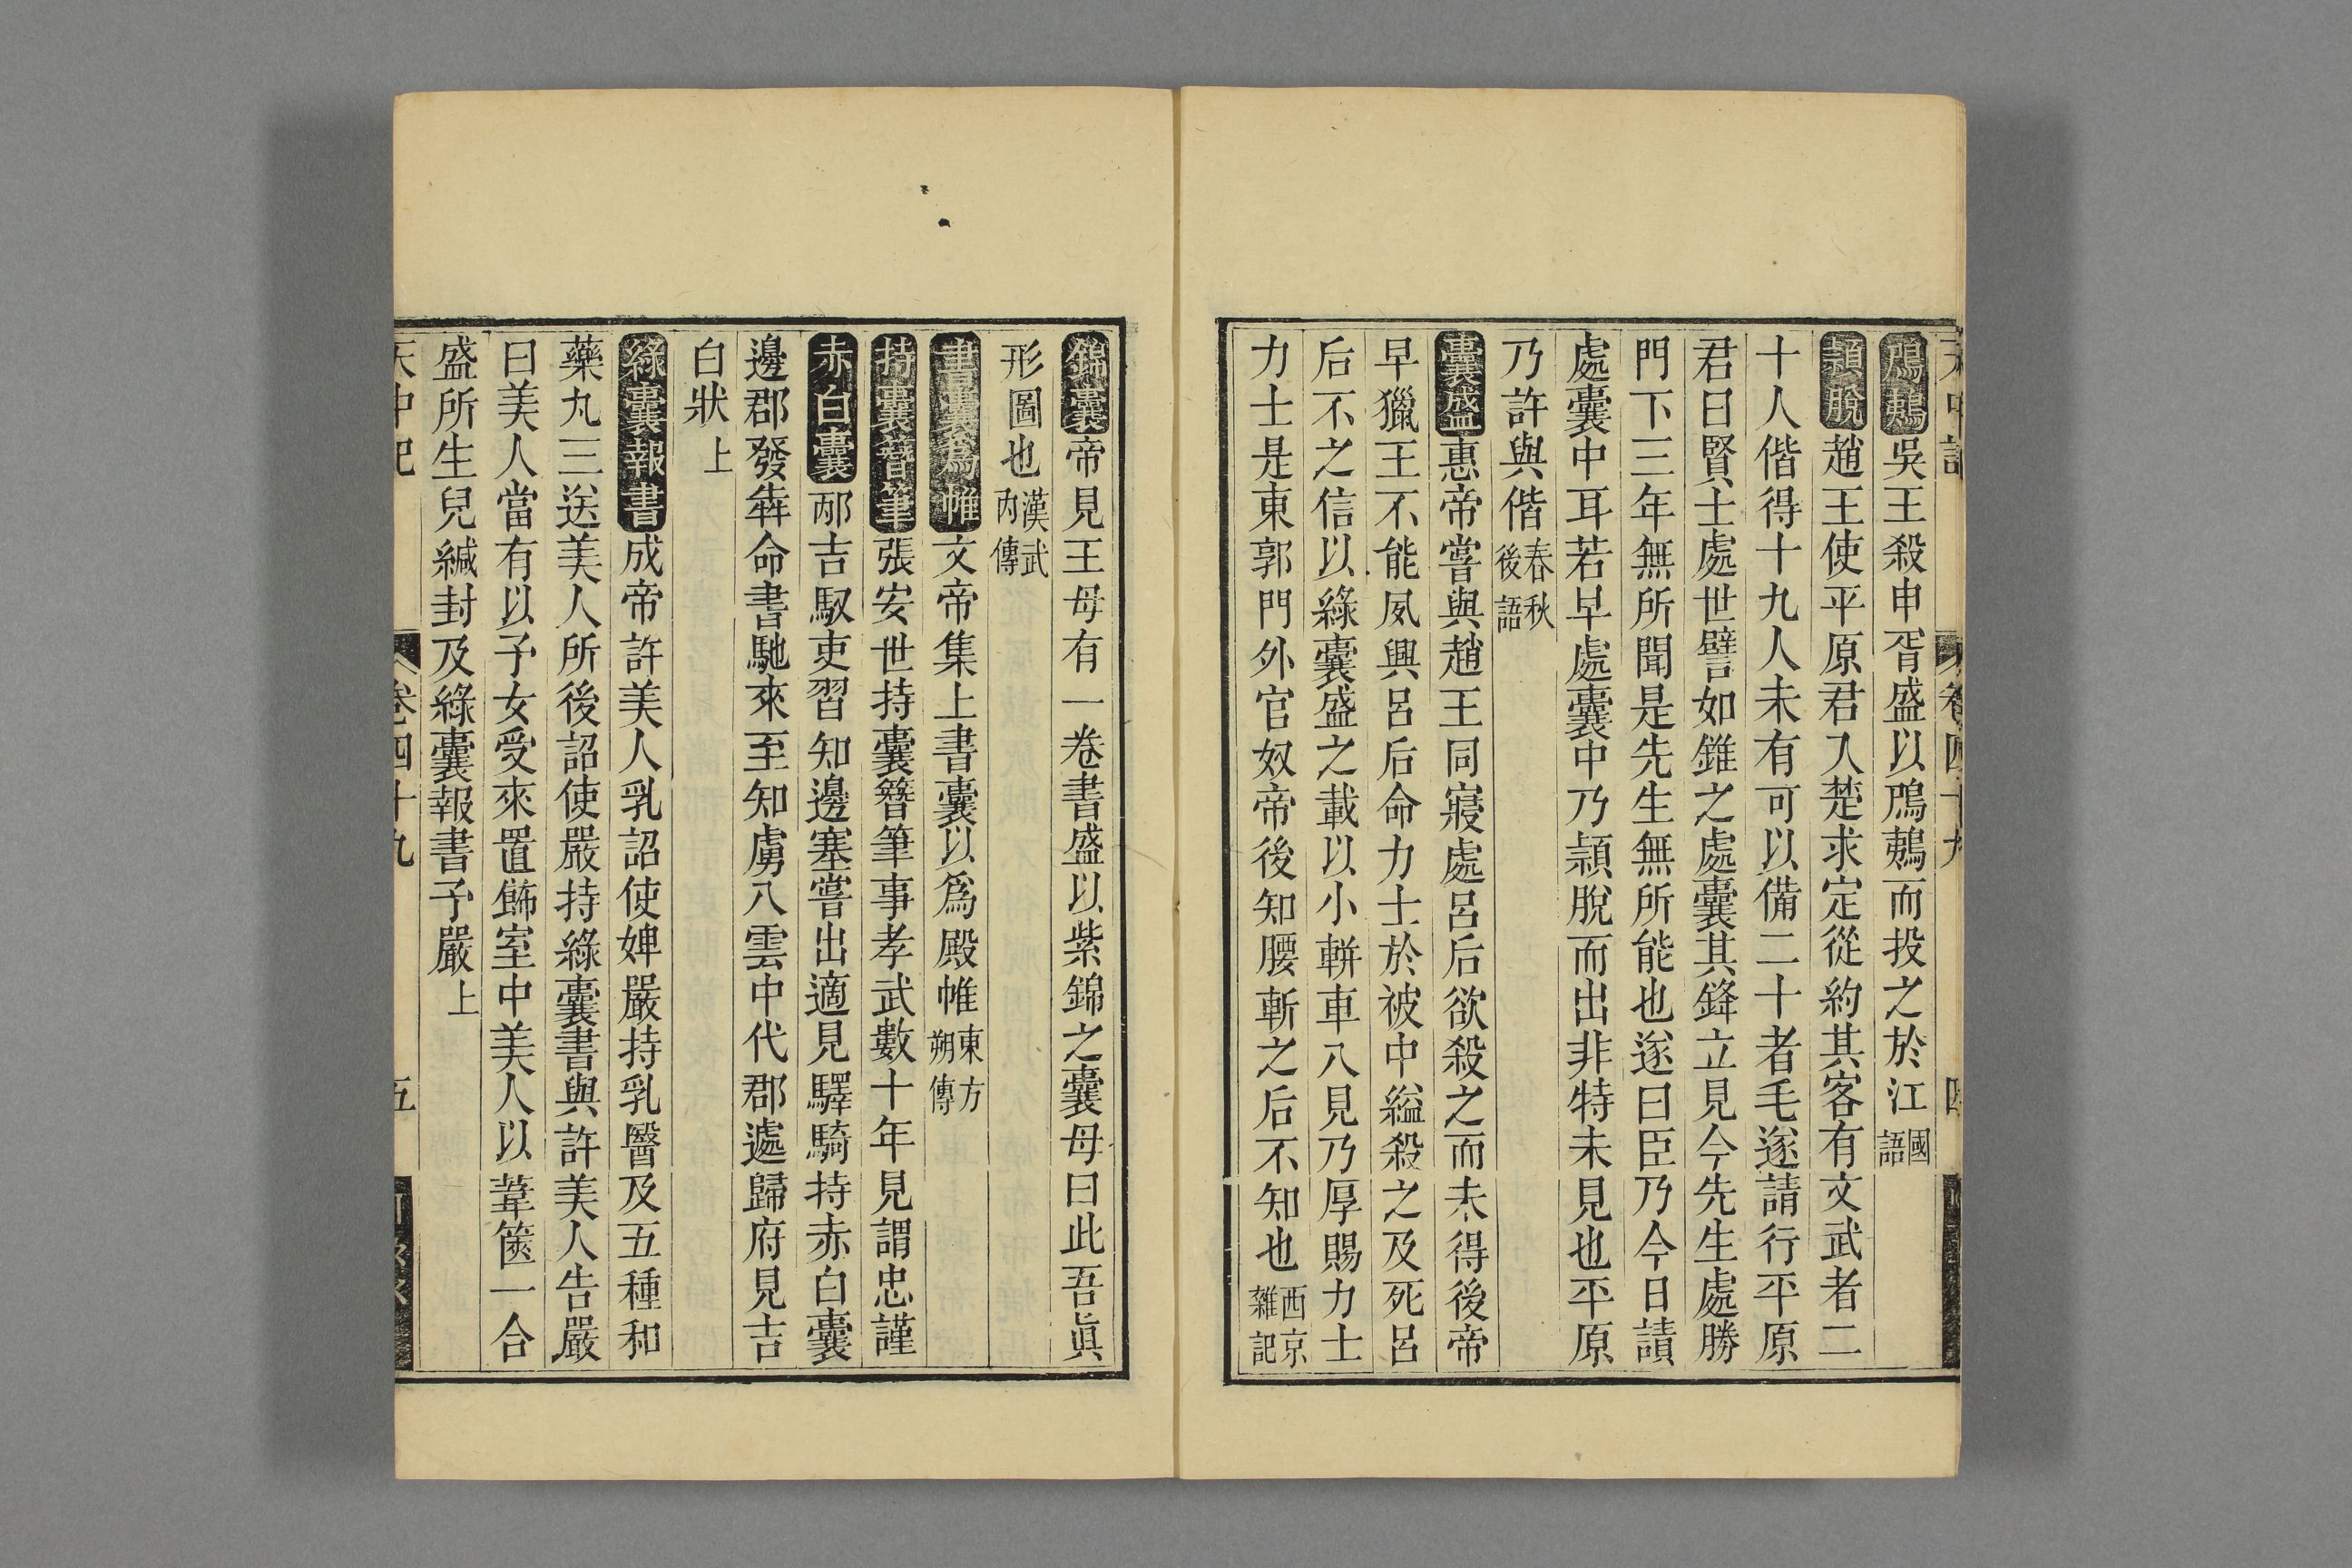 鴟鴺吳王殺申胥盛以鴟鴺而投之於江國語
頴脫趙王使平原君入楚求定從約其客有文武者二
十人偕得十九人未有可以備二十者毛遂請行平原
君曰賢士處世譬如錐之處囊其鋒立見今先生處勝
門下三年無所聞是先生無所能也遂曰臣乃今日請
處囊中耳若早處囊中乃頴脫而出非特未見也平原
乃許與偕春秋後語
囊盛惠帝嘗與趙王同寢處呂后欲殺之而未得後帝
早獵王不能夙興呂后命力士於被中縊殺之及死呂
后不之信以綠囊盛之載以小輧車入見乃厚賜力士
力士是東郭門外官奴帝後知腰斬之后不知也西京雜記
錦囊帝見王母有一卷書盛以紫錦之囊母曰此吾眞
形圖也漢武內傳
書囊爲帷文帝集上書囊以爲殿帷東方朔傳
持囊簪筆張安世持囊簪筆事孝武數十年見謂忠謹
赤白囊邴吉馭吏習知邊塞嘗出適見驛騎持赤白囊
邊郡發犇命書馳來至知虜入雲中代郡遽歸府見吉
白狀上
綠囊報書成帝許美人乳詔使婢嚴持乳醫及五種和
藥丸三送美人所後詔使嚴持綠囊書與許美人告嚴
曰美人當有以予女受來置飾室中美人以葦篋一合
盛所生兒緘封及綠囊報書予嚴上
天中記 卷四十九 五